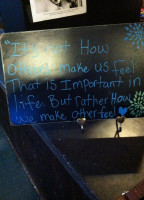 "It's not How
others make us feel
That is Important in
life. But rather How
we make other feel